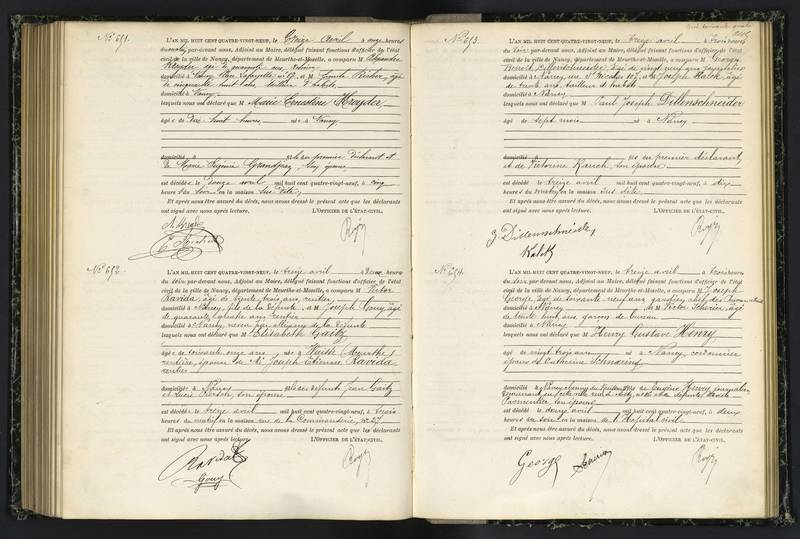 No. 651.
L'AN MIL HUIT CENT QUATRE-VINGT-NEUF, le treize avril à onze heures
du matin, par-devant nous, Adjoint au Maire, délégué faisant fonctions d'officier de l'état
civil de la ville de Nancy, département de Meurthe-et-Moselle, a comparu M Alexandre
Kreyder
domicilié à Nancy, et M Emile
domicilié à Nancy
lesquels nous ont déclaré que Marie Ernestine Kreyder,
âgée de dix huit heures, née à Nancy
domicilié à fille du premier déclarant et
de Marie Eugénie Grandjean, son épouse
est décédée le douze avril mil huit cent quatre-vingt-neuf, à cinq
heures du soir en la maison sus dite
Et après nous être assuré du décès, nous avons dressé le présent acte que les déclarants
ont signé avec nous après lecture. L'OFFICIER DE L'ÉTAT-CIVIL.
No. 652.
L'AN MIL HUIT CENT QUATRE-VINGT-NEUF, le treize avril à deux heures
du soir, par-devant nous, Adjoint au Maire, délégué faisant fonctions d'officier de l'état
civil de la ville de Nancy, département de Meurthe-et-Moselle, a comparu M Victor
Ravida, âgé de trente trois ans, rentier,
domicilié à Nancy, fils de la défunte, et M Joseph Gouy, âgé
de quarante ans, rentier
domicilié à Nancy, neveu par alliance de la défunte
lesquels nous ont déclaré que M Elisabeth Gaitz
âgée de soixante onze ans née à (Meurthe)
rentière, épouse de M. Joseph Etienne Ravida,
rentier
domiciliée à Nancy fille des défunts Jean Gaitz
et Lucie Pierson, son épouse
est décédée le treize avril mil huit cent quatre-vingt-neuf, à trois
heures du matin en la maison rue de la Commanderie, no. 27
Et après nous être assuré du décès, nous avons dressé le présent acte que les déclarants
ont signé avec nous après lecture. L'OFFICIER DE L'ÉTAT-CIVIL.
Ravida
Gouy
No. 653.
L'AN MIL HUIT CENT QUATRE-VINGT-NEUF, le treize avril à trois heures
du soir, par-devant nous, Adjoint au Maire, délégué faisant fonctions d'officier de l'état
civil de la ville de Nancy, département de Meurthe-et-Moselle, a comparu M George
Dillenschneider, âgé de vingt neuf ans
domicilié à Nancy rue St Nicolas 107, et M Joseph âgé
de trente ans, tailleur d'habits
domicilié à Nancy
lesquels nous ont déclaré que M Paul Joseph Dillenschneider
âgé de sept mois né à Nancy
domicilié à fils du premier déclarant,
et de Victorine Rauch, son épouse
est décédé le treize avril mil huit cent quatre-vingt-neuf, à dix
heures du matin en la maison sus dite
Et après nous être assuré du décès, nous avons dressé le présent acte que les déclarants
ont signé avec nous après lecture. L'OFFICIER DE L'ÉTAT-CIVIL.
G Dillenschneider
No. 654.
L'AN MIL HUIT CENT QUATRE-VINGT-NEUF, le treize avril à trois heures
du soir, par-devant nous, Adjoint au Maire, délégué faisant fonctions d'officier de l'état
civil de la ville de Nancy, département de Meurthe-et-Moselle, a comparu M Joseph
George, âgé de soixante neuf ans, gardien
domicilié à Nancy et M Victor âgé
de trente huit ans, garçon de bureau
domicilié à Nancy
lesquels nous ont déclaré que M Henry Gustave Henry
âgé de vingt trois ans né à Nancy, cordonnier
époux de Catherine Schnoering
domicilié à Nancy fils de Eugène Henry, journalier,
Parmentier, son épouse
est décédé le douze avril mil huit cent quatre-vingt-neuf, à deux
heures du soir en la maison de l'hôpital civil
Et après nous être assuré du décès, nous avons dressé le présent acte que les déclarants
ont signé avec nous après lecture. L'OFFICIER DE L'ÉTAT-CIVIL.
George